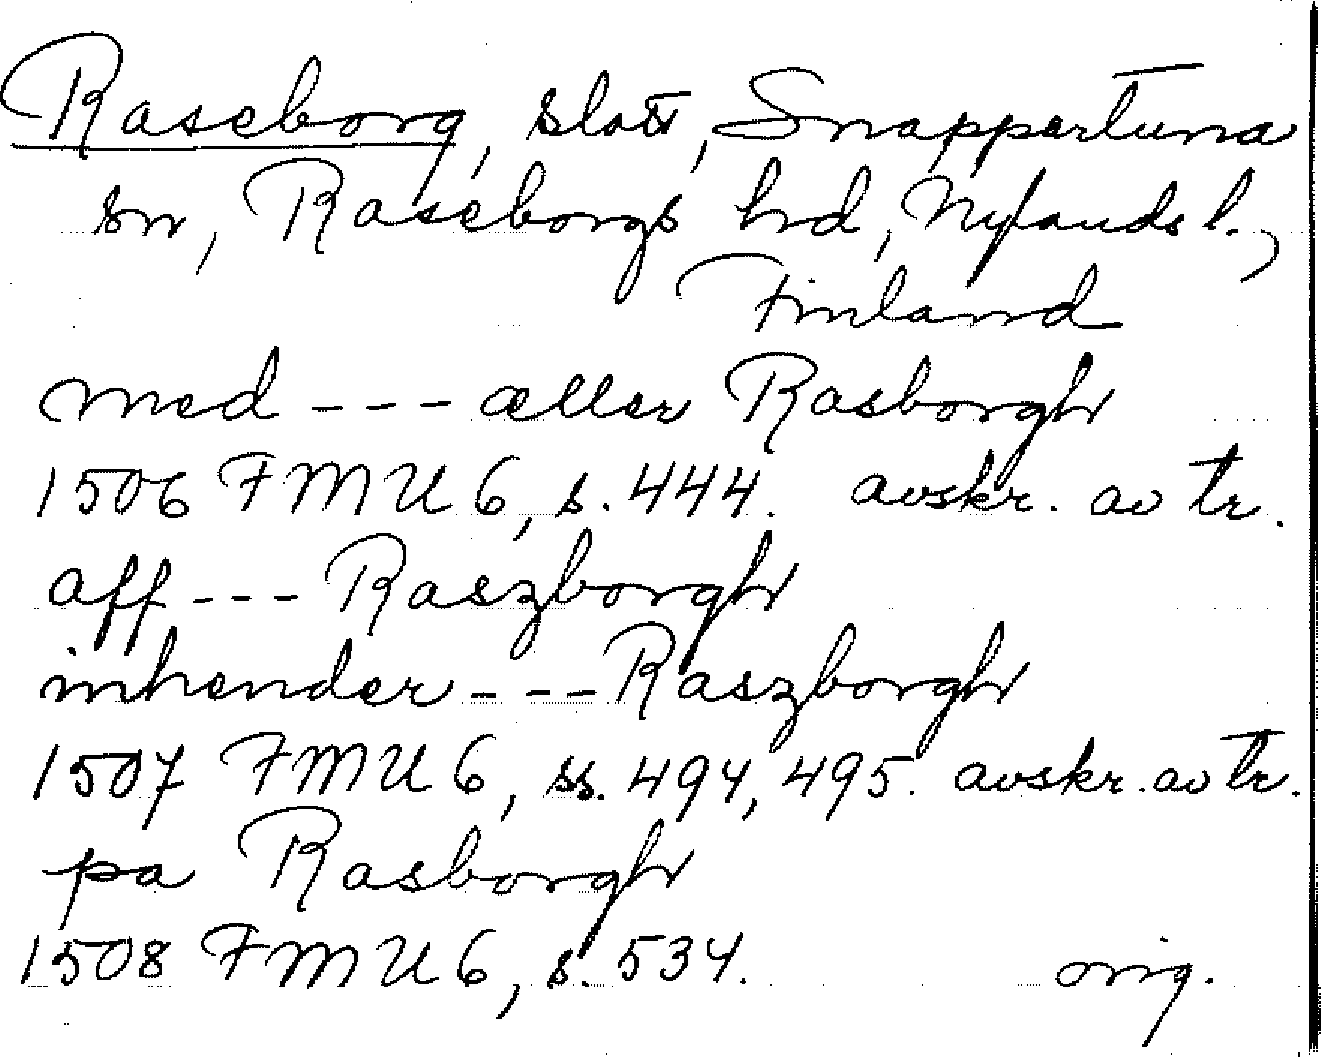 Raseborg, slott, Snappertuna
sn, Raseborgs hrd, Nylands l.,
Finland
med --- æller Rasborgh
1506 FMU 6, s. 444. avskr. av tr.
aff --- Raszborgh
inhender --- Raszborgh
1507 FMU 6, ss. 494, 495. avskr. av tr.
pa Rasborgh
1508 FMU 6, s. 534. orig.